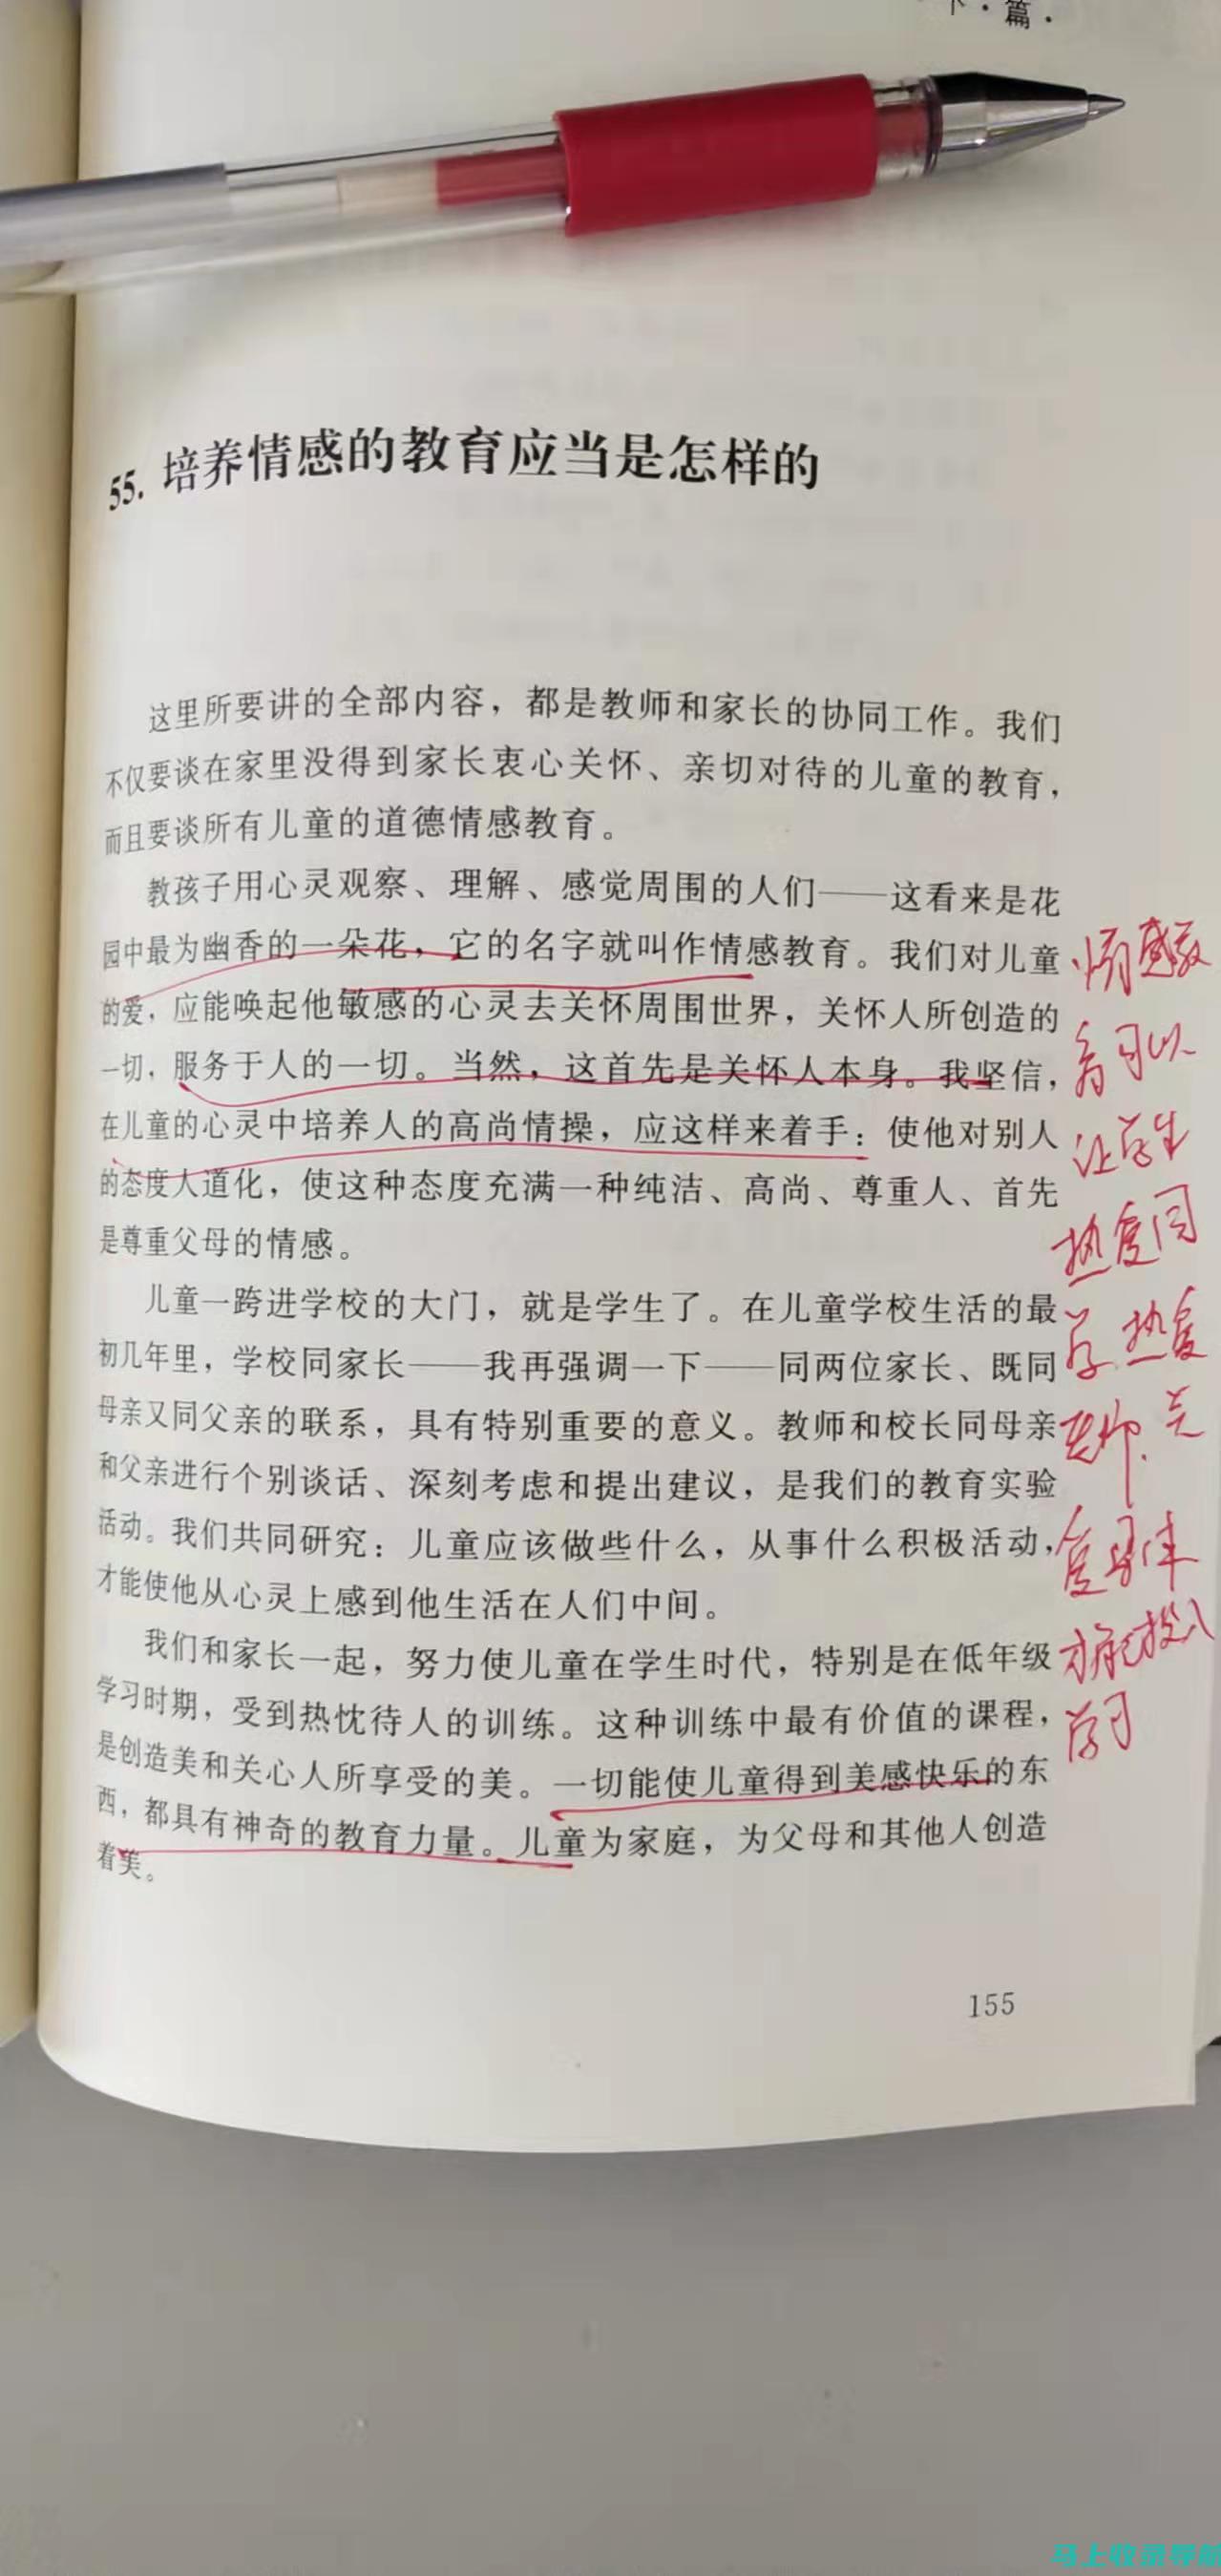 下·篇·
55. 培养情感的教育应当是怎样的
这里所要讲的全部内容，都是教师和家长的协同工作。我们
不仅要谈在家里没得到家长衷心关怀、亲切对待的儿童的教育，
而且要谈所有儿童的道德情感教育。
教孩子用心灵观察、理解、感觉周围的人们——这看来是花
园中最为幽香的一朵花，它的名字就叫作情感教育。我们对儿童
的爱，应能唤起他敏感的心灵去关怀周围世界，关怀人所创造的
一切，服务于人的一切。当然，这首先是关怀人本身。我坚信，
在儿童的心灵中培养人的高尚情操，应这样来着手：使他对别人
的态度人道化，使这种态度充满一种纯洁、高尚、尊重人、首先
是尊重父母的情感。
儿童一跨进学校的大门，就是学生了。在儿童学校生活的最
初几年里，学校同家长——我再强调一下——同两位家长、既同
母亲又同父亲的联系，具有特别重要的意义。教师和校长同母亲
和父亲进行个别谈话、深刻考虑和提出建议，是我们的教育实验
活动。我们共同研究：儿童应该做些什么，从事什么积极活动，
才能使他从心灵上感到他生活在人们中间。
我们和家长一起，努力使儿童在学生时代，特别是在低年级
学习时期，受到热忱待人的训练。这种训练中最有价值的课程，
是创造美和关心人所享受的美。一切能使儿童得到美感快乐的东
西，都具有神奇的教育力量。儿童为家庭，为父母和其他人创造
着美。
情感教
育可以
让学生
热爱同
学 热爱
老师、关
爱集体
才能投入
学习
155
马上收录导航